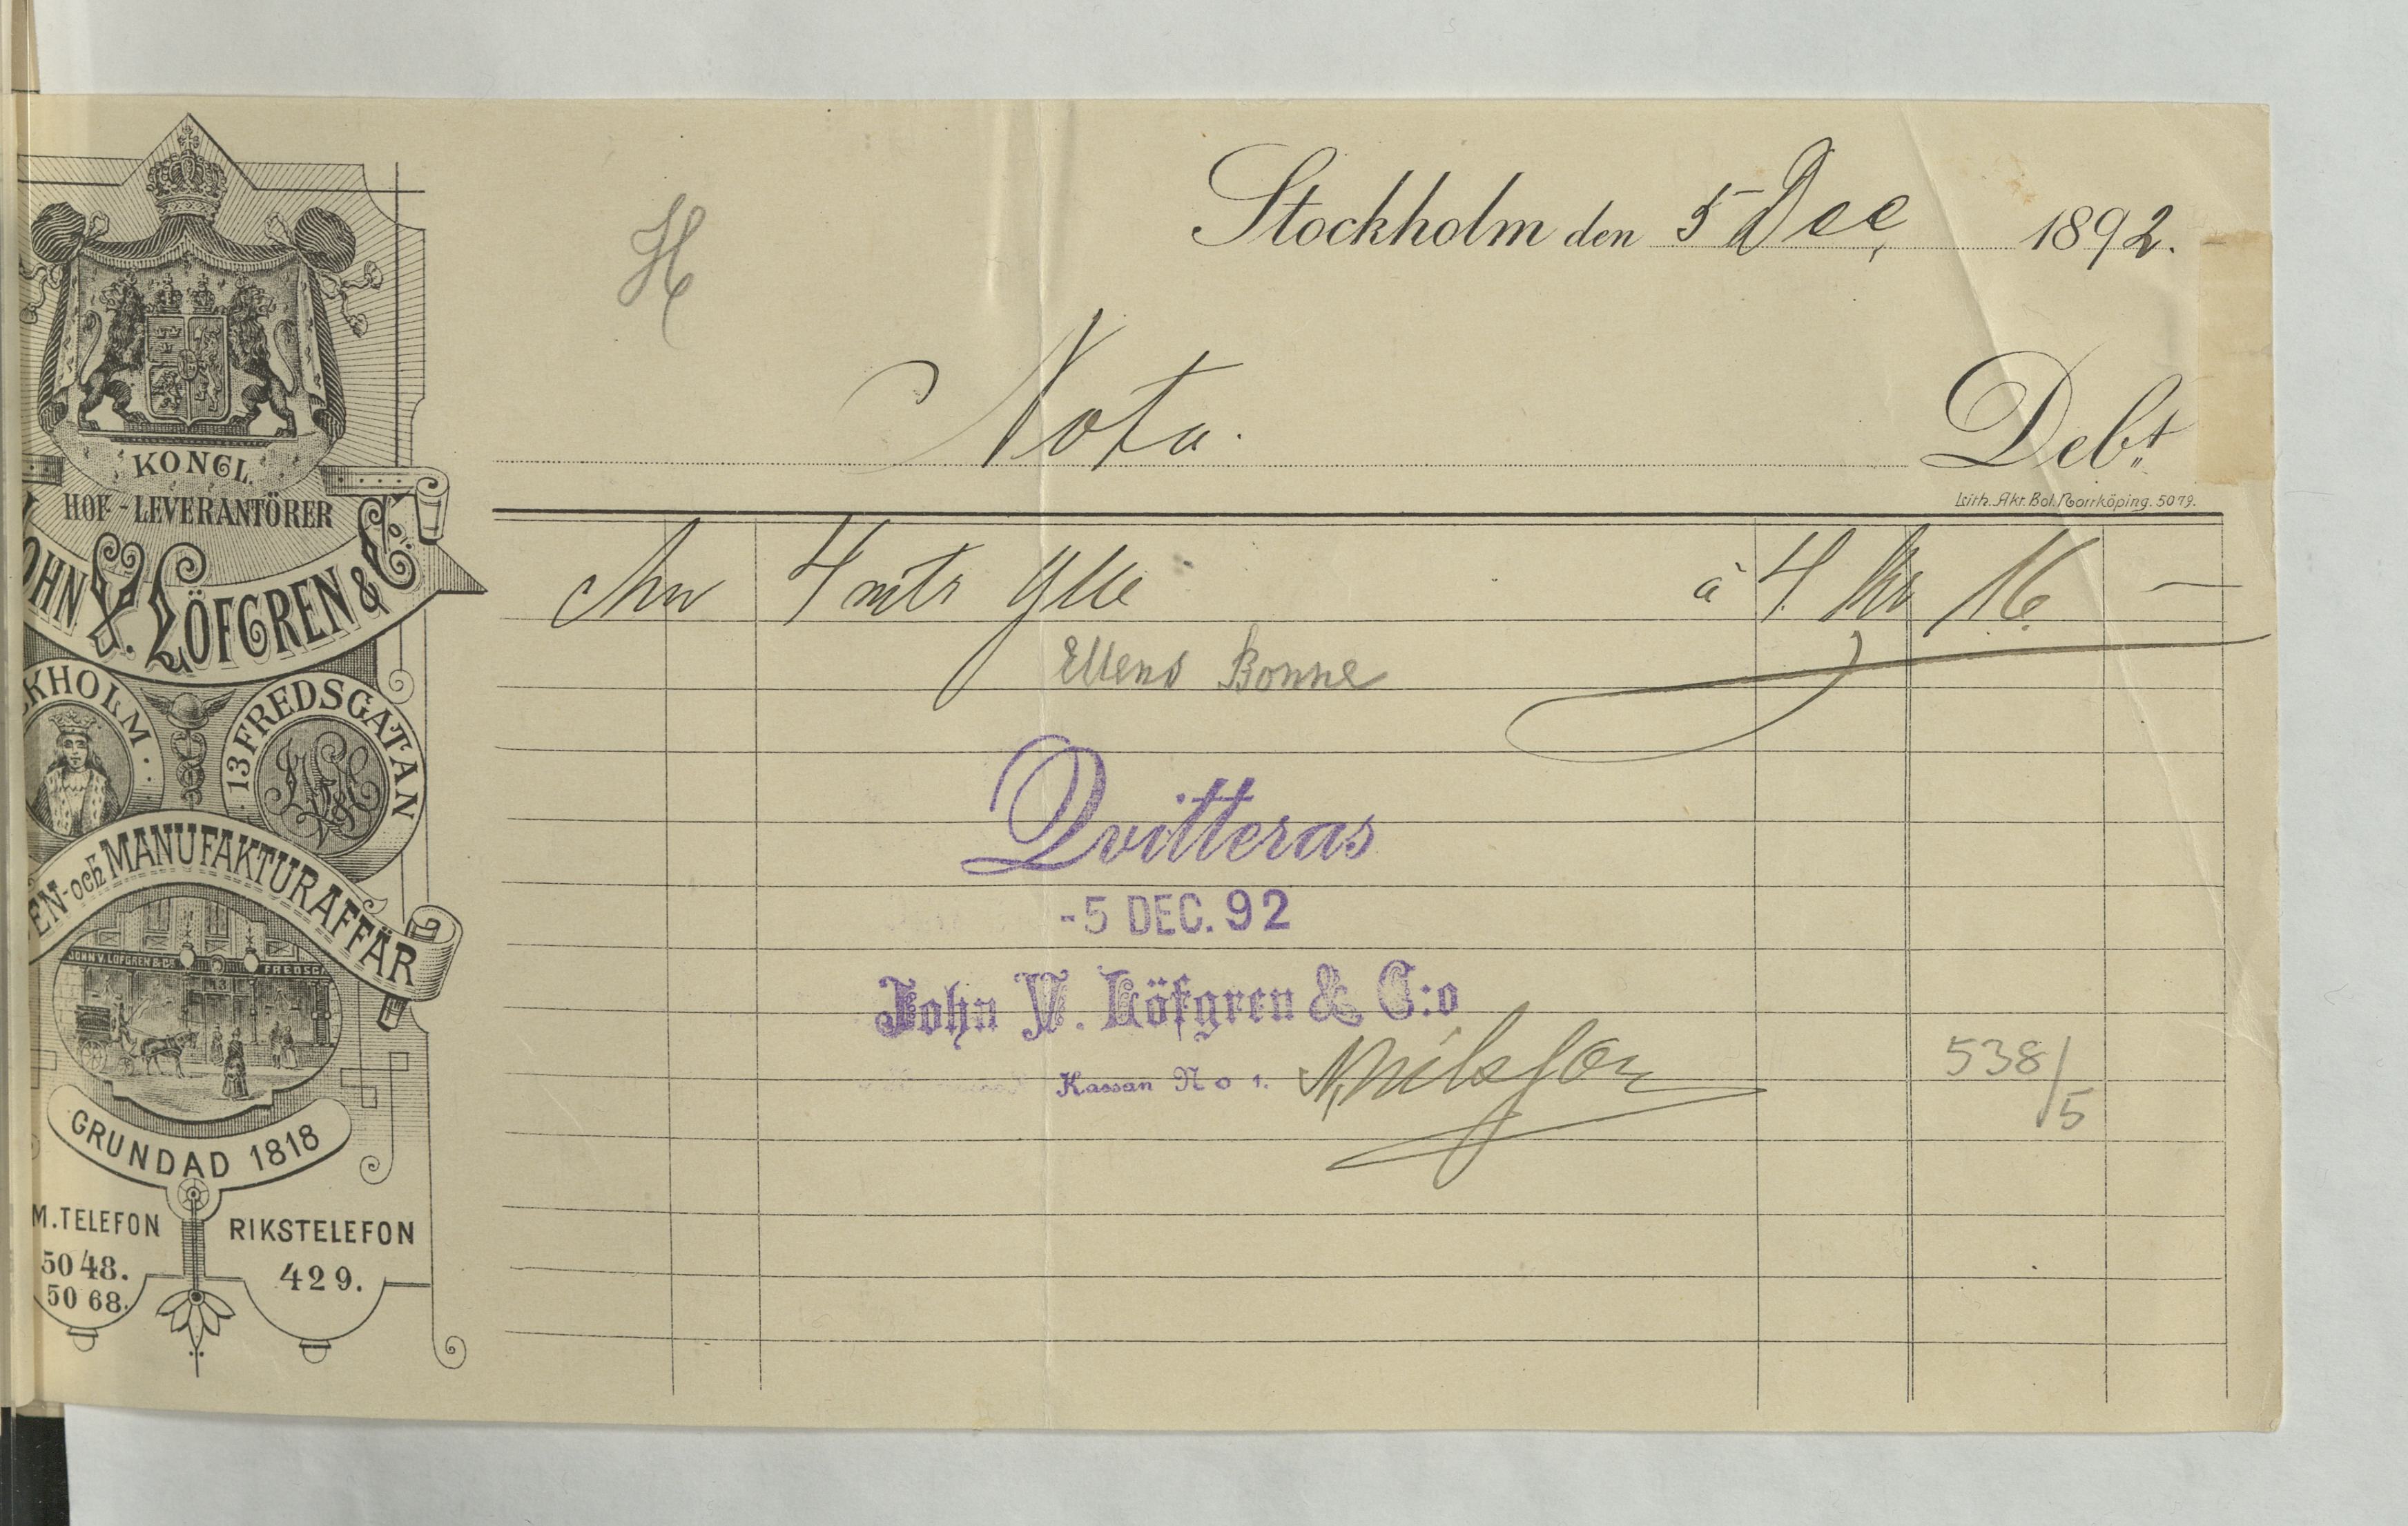 KONGL.
HOF-LEVERANTÖRER
OHN V. LÖFGREN & Co
KHOLM
13 FREDSGATAN
EN- och MANUFAKTURAFFÄR
JOHN V. LÖFGREN & Co
13
FREDSG
GRUNDAD 1818
M. TELEFON
5048.
5068.
RIKSTELEFON
429.
H
Stockholm den 5 Dec, 1892.
Nota. Debt
Lith. Akt. Bol. Norrköping. 5079.
4 mtr Ylle à 4 Kr 16 —
Ellens Bonne
Qvitteras
-5 DEC. 92
John V. Löfgren & C:o
Kassan No 1. N. Nilsson
538/5